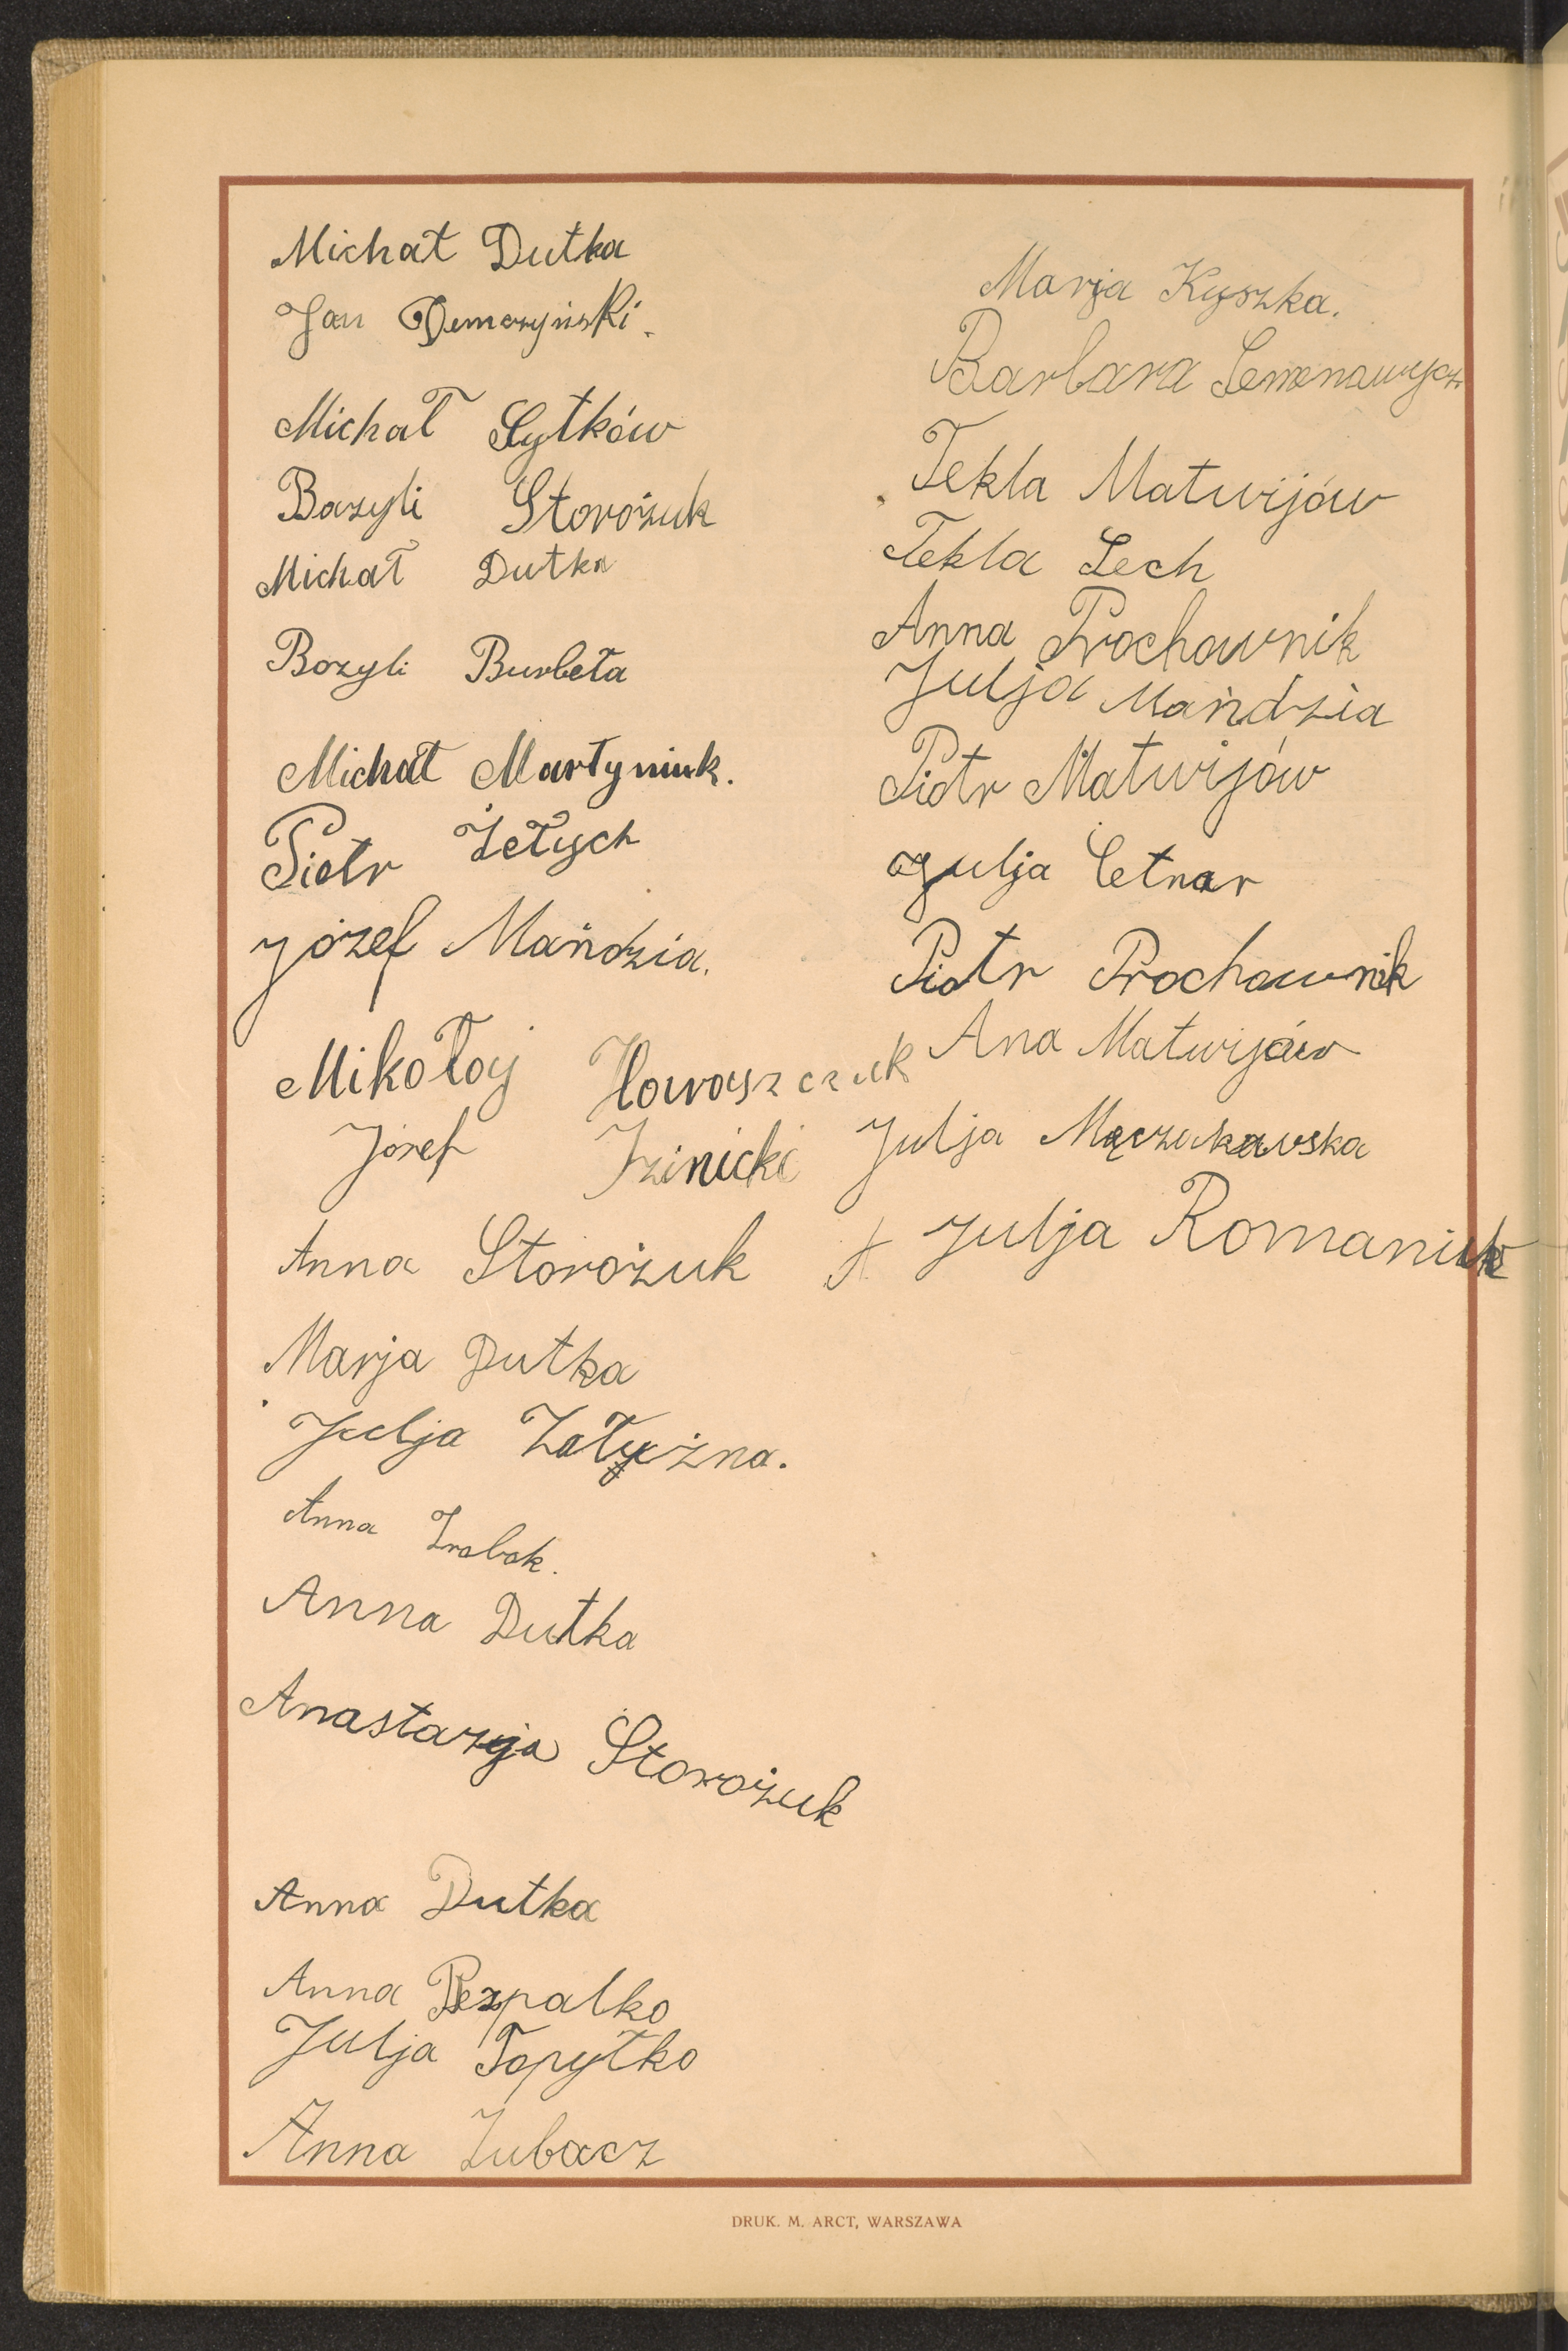 Michał Dutka
Jan Demczyński.
Michał Sytków
Bazyli Storożuk
Michał Dutka
Bozyli Burbeła
Michał Martyniuk.
Piotr Żełych
Józef Mańdzia.
Mikołaj Howoszczuk
Józef Izinicki
Anna Storożuk
Marja Dutka
Julja Załyżna.
Anna Zrobok.
Anna Dutka
Anastazja Storożuk
Anna Dutka
Anna Bezpalko
Julja Topyłko
Anna Zubacz
Marja Kyszka.
Barbara Semenawycz
Tekla Matwijów
Tekla Lech
Anna Prochownik
Julja Mańdzia
Piotr Matwijów
Julja Cetnar
Piotr Prochownik
Ana Matwijów
Julja Mączukawska
Julja Romaniuk
DRUK. M. ARCT, WARSZAWA